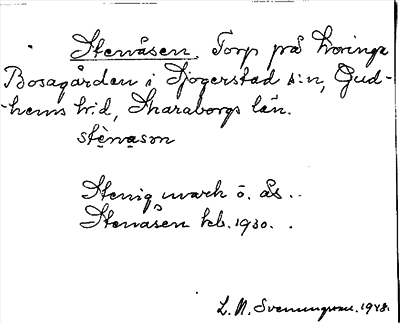 Stenåsen. Torp på Kvarings
Bosagården i Sjögerstad s:n, Gud-
-hems h:d, Skaraborgs län.
stènason
Stenig mark o. ås.
Stenåsen hcb. 1930.
L. N. Svenungsson. 1948.